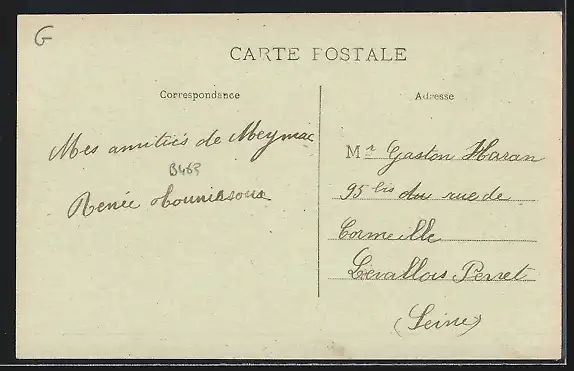 G
CARTE POSTALE
Correspondance
Adresse
Mes amitiés de Meymac
B469
Renée
Mr Gaston Haran
95 bis rue de
Cormeille
Levallois Perret
(Seine)